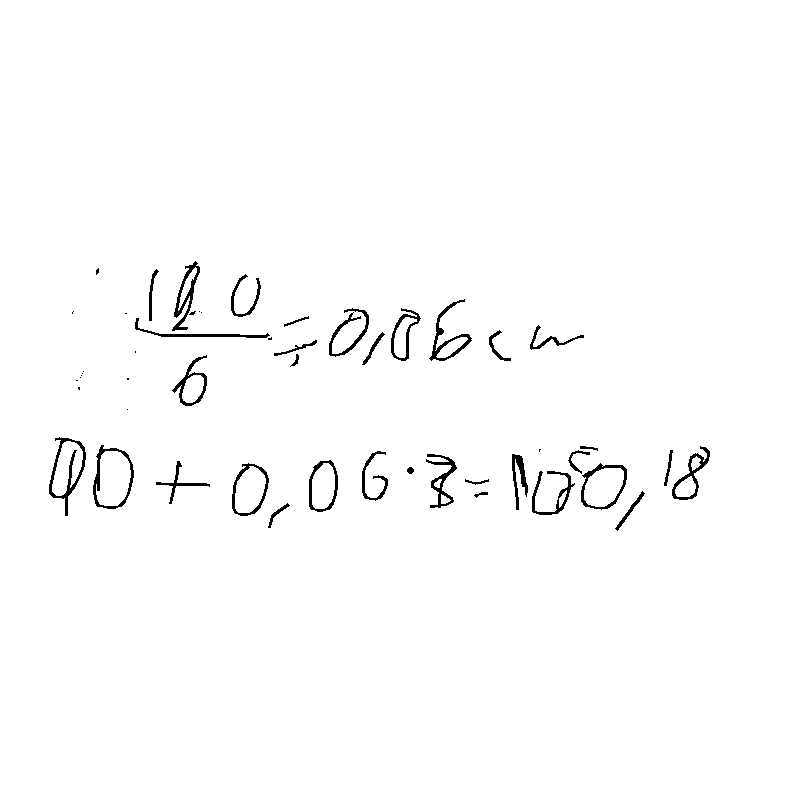 120
6 = 0,06 cm
90 + 0,06 · 3 = 100,18